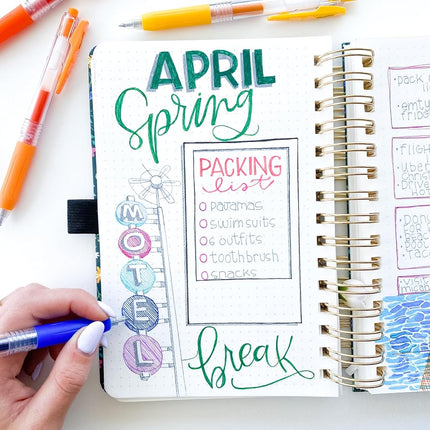 APRIL
Spring
PACKING
list
pajamas
swimsuits
6 outfits
toothbrush
snacks
MOTEL
break
pack
emty
fridge
flight
uber
Drive
Donuts
visit